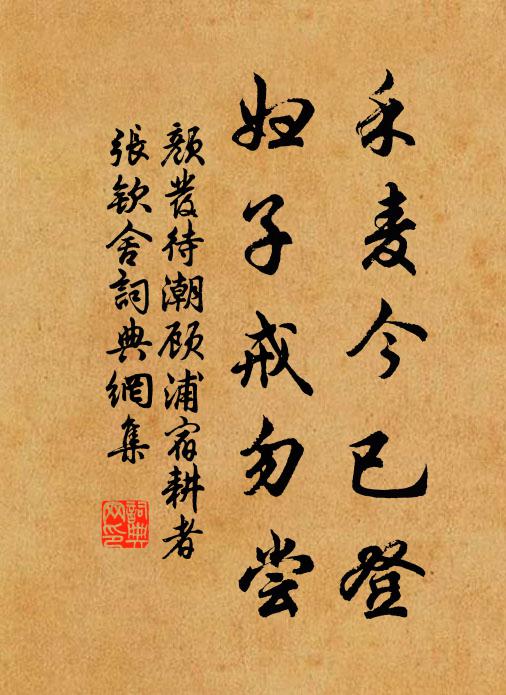 禾麦今已登
妇子戒勿尝
颜发待潮顾浦宿耕者
张钦舍词典网集
词典
网印